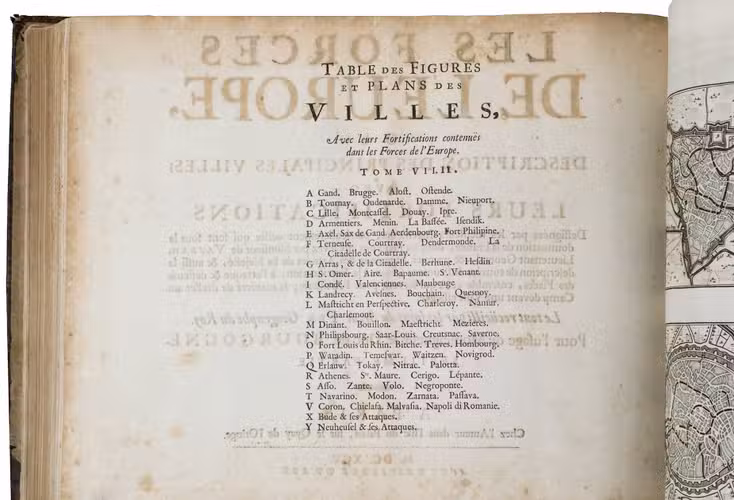 TABLE DES FIGURES
ET PLANS DES
VILLES,
Avec leurs Fortifications contenuës
dans les Forces de l'Europe.
TOME VI. II.
A Gand. Brugge. Alost. Ostende.
B Tournay. Oudenarde. Damme, Nieuport.
C Lille. Montcassel. Douay. Ipre.
D Armentiers. Menin. La Bassée. Isendik.
E Axel. Sax de Gand. Aerdenbourg. Fort Philipine.
F Terneuse. Courtray. Dendermonde. La
Citadelle de Courtray.
G Arras, & de la Citadelle. Bethune. Hesdin.
H S. Omer. Aire. Bapaume. S. Venant.
I Condé. Valenciennes. Maubeuge
K Landrecy. Avesnes. Bouchain. Quesnoy.
L Mastricht en Perspective. Charleroy. Namur.
Charlemont.
M Dinant. Bouillon. Maestricht. Mezieres.
N Philipsbourg. Saar-Louis. Creutsnac. Saverne.
O Fort Louis du Rhin. Bitche. Treves. Hombourg.
P Waradin. Temeswar. Waitzen. Novigrod.
Q Erlauw. Tokay. Nitrac. Palotta.
R Athenes. Ste. Maure. Cerigo. Lépante.
S Asso. Zante. Volo. Negroponte.
T Navarino. Modon. Zarnata. Passava.
V Coron. Chielasa. Malvasia. Napoli di Romanie.
X Bude & ses Attaques.
Y Neuheusel & ses Attaques.